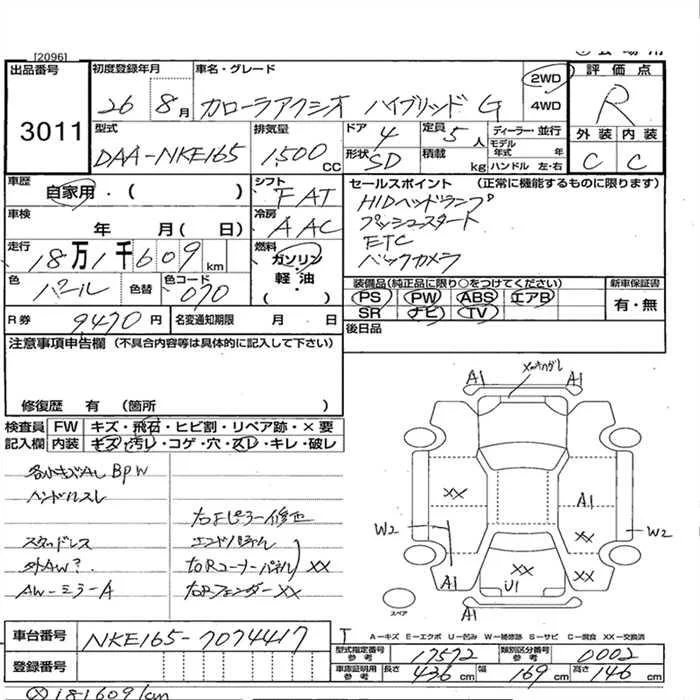 [2096]
出品番号
3011
初度登録年月
26 8月
車名・グレード
カローラアクシオ ハイブリッド G
2WD
4WD
評価点
R
外装 内装
C C
型式
DAA-NKE165
排気量
1,500 CC
ドア 4
定員 5人
形状 SD
積載 kg
ディーラー・並行
モデル年式 年
ハンドル 左・右
車歴
自家用・( )
シフト FAT
セールスポイント (正常に機能するものに限ります)
HIDヘッドランプ
プッシュスタート
ETC
バックカメラ
車検
年 月( 日)
冷房 AAC
走行
18万1千609km
燃料
ガソリン
軽・油
・( )
色 パール
色替
色コード 070
装備品(純正品に限り○をつけてください)
PS PW ABS エアB
SR ナビ TV
新車保証書
有・無
R券 9,470円
名変通知期限 月 日
後日品
注意事項申告欄 (不具合内容等は具体的に記入して下さい)
修復歴 有 (箇所 )
検査員記入欄
FW キズ・飛石・ヒビ割・リペア跡・×要
内装 キズ・汚レ・コゲ・穴・スレ・キレ・破レ
BPW
ハンドルスレ
スタッドレス
外AW?
AW-ミラーA
右Fピラー修正
右Rコーナーパネル XX
右Rフェンダー XX
A1
A1
XX
A1
W2
XX
W2
A1
XX
U1
XX
A1
スペア
A…キズ E…エクボ U…凹み W…補修跡 S…サビ C…腐食 XX…交換済
車台番号 NKE165-7074417
登録番号
型式指定番号 参考 17572
類別区分番号 参考 0002
車庫証明用 参考 長さ 436cm 幅 169cm 高さ 146cm
181609km